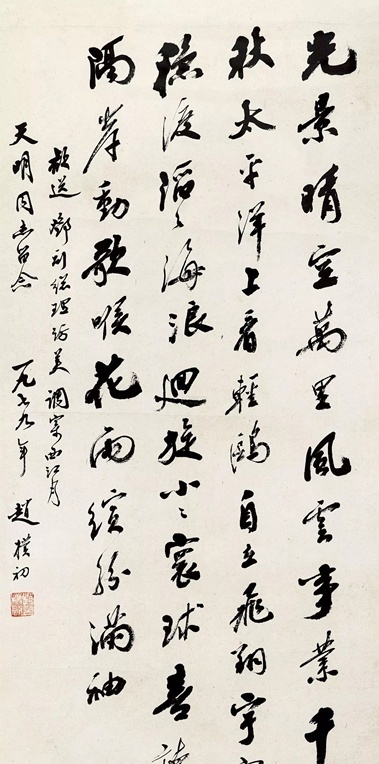 光景晴空萬里風雲事業千
秋太平洋上看輕鷗自在飛翔宇
穩渡滔滔海浪迴旋小小寰球喜
隔岸動歌喉花雨繽紛滿袖
歡送鄧副總理訪美調寄西江月
天明同志留念 一九七九年 趙樸初